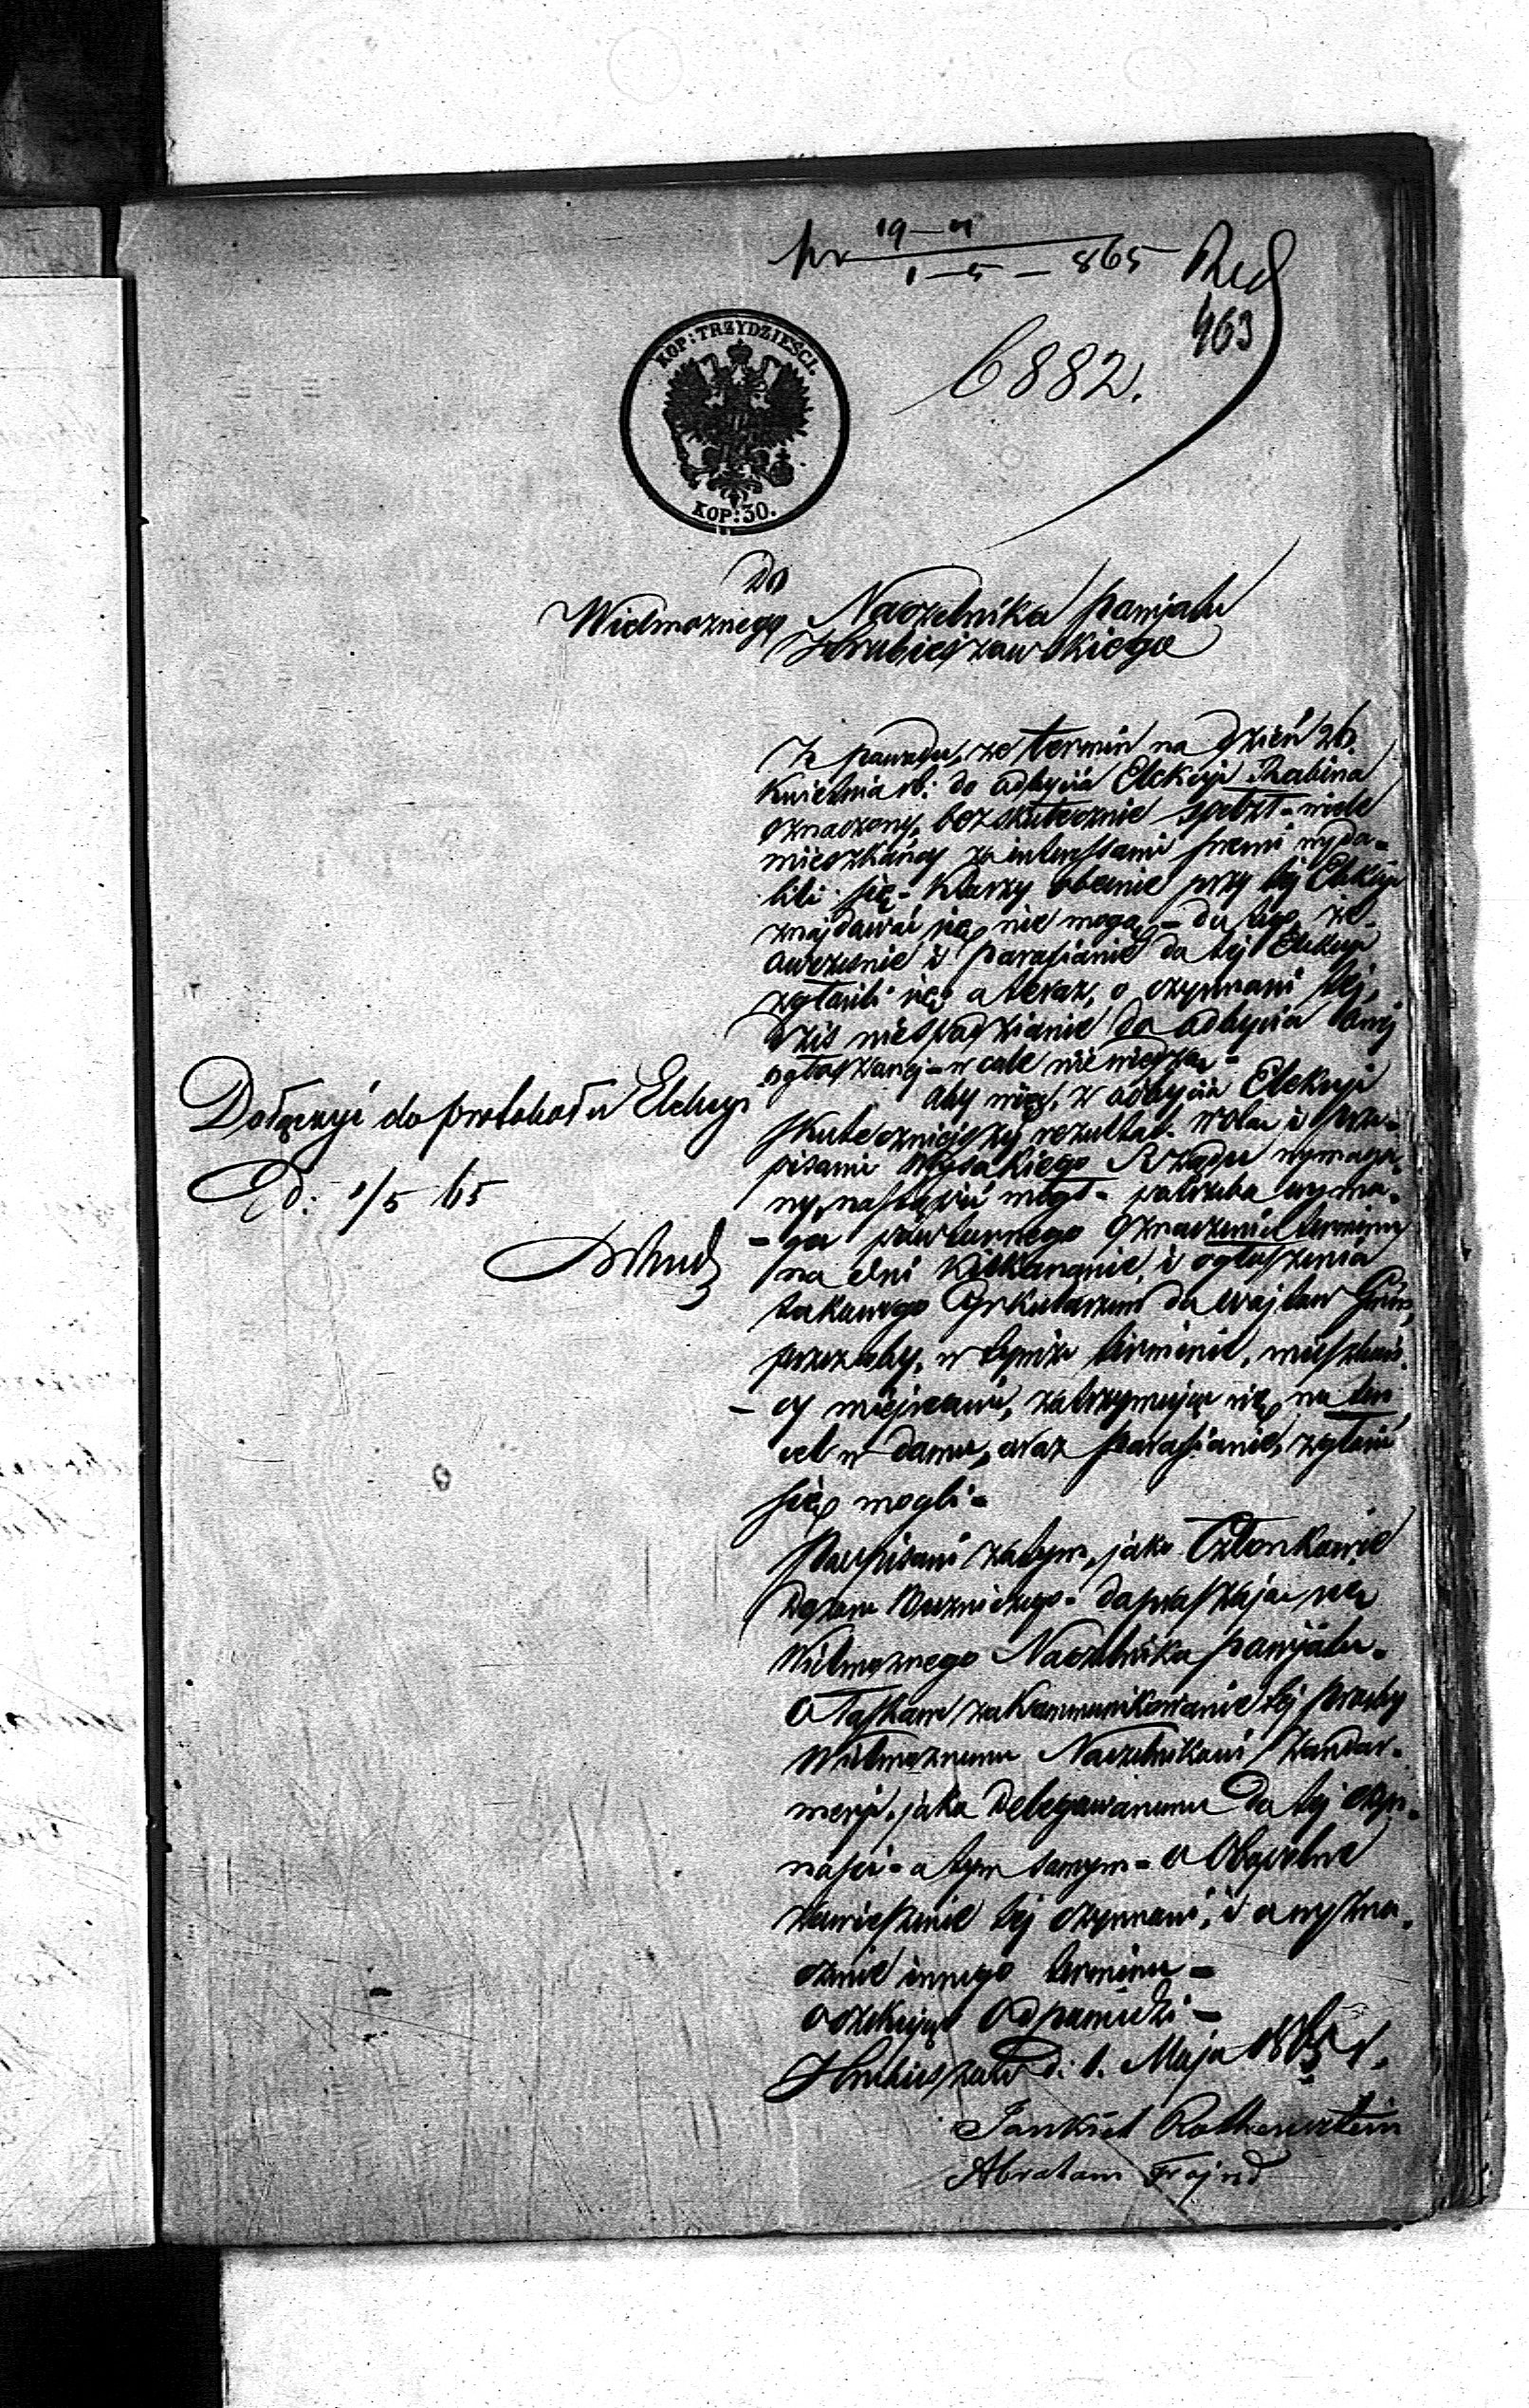 pr 19-4
1-5-865 Red
463
6882.
KOP: TRZYDZIEŚCI.
KOP: 30.
Do
Wielmożnego Naczelnika powiatu
Hrubieszowskiego
Z powodu, że termin na dzień 26.
Kwietnia rb: do odbycia Elekcyi Rabina
oznaczony, bezskutecznie spełzł - wiele
mieszkańcy za interessami swemi wyda-
lili się - Którzy obecnie przy tej Elekcyi
znajdować się nie mogą - do tego, że
ówcześnie i parafianie do tej Elekcyi
zgłosili się; a teraz, o czynności tej,
dziś niespodzianie do odbycia onej
ogłoszonej - wcale nie wiedzą -
Aby więc, z odbycia Elekcyi
skuteczniejszy rezultat. wolą i prze-
pisami Wysokiego Rządu wymaga-
ny, nastąpić mógł - potrzeba wyma-
- ga powtórnego oznaczenia terminu
na dni Kilkanaście, i ogłoszenia
takowego Cyrkularzem do Wójtów Gmin,
przezcoby, w tymże terminie, mieszkań-
- cy miejscowi, zatrzymując się na ten
cel w domu, oraz parafianie, zgłosić
się mogli -
Podpisani zatym, jako Członkowie
Dozoru Bużniczego - dopraszają się
Wielmożnego Naczelnika powiatu -
o łaskawe zakommunikowanie tej prośby
Wielmożnemu Naczelnikowi Żandar-
meryi, jako Delegowanemu do tej czyn-
ności - a tym samym - o
zawieszenie tej czynności, i o wyzna-
czenie innego terminu -
oczekując Odpowiedzi -
Hrubieszów d: 1. Maja 1865 r.
Jankiel Rothensztein
Abraham Frajnd
Dołączyć do protokołu Elekcyi
D: 1/5 65